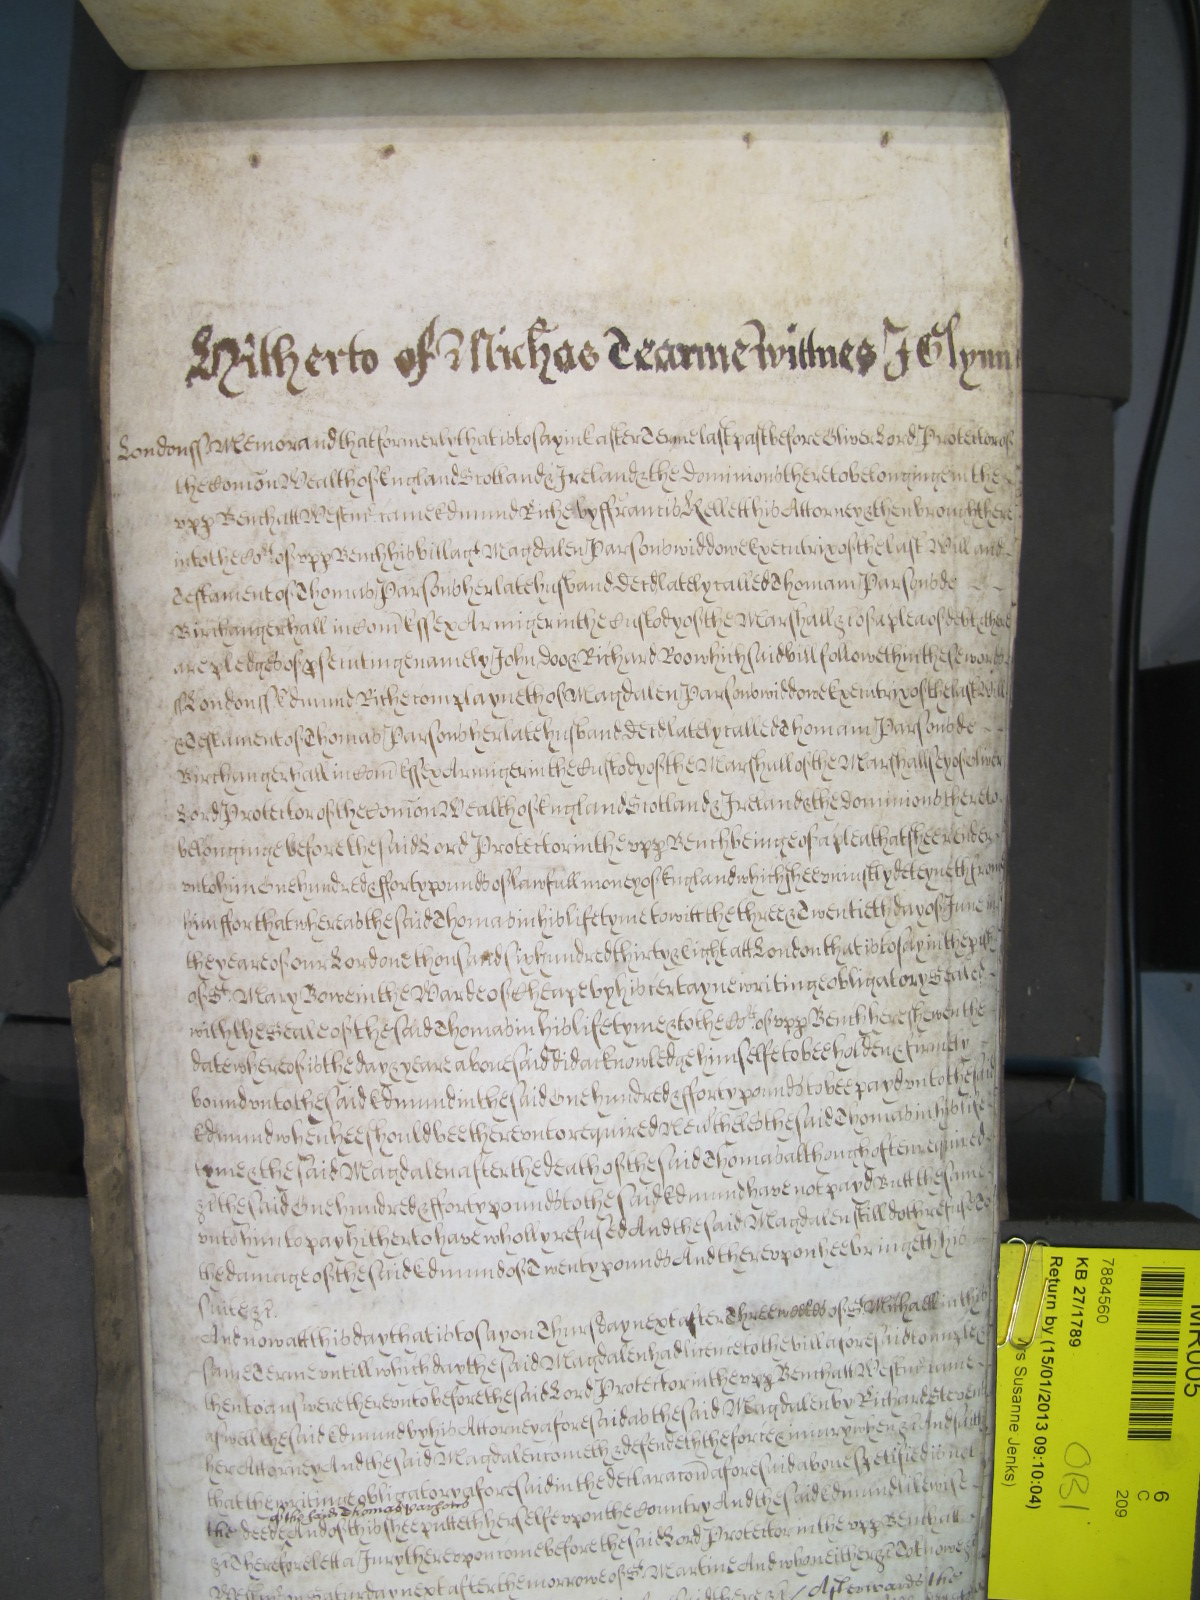 Hitherto of Michas Tearme Wittnes J Glynn
Londonss Memorand that formerly that is to say in Easter Terme last past before Oliver Lord Protector of
the Com̄on Wealth of England Scotland & Ireland & the dominions thereto belonginge in the
upp Bench att Westmr came Edmund Riche by ffrancis Kellett his Attorney & then brought here
into the Cot of upp Bench his bill agt Magdalen Parsons widdowe Executrix of the last Will and
Testament of Thomas Parsons her late husband decd lately called Thomam Parsons de
Birchanger hall in Com̄ Essex Armiger in the Custody of the Marshall &c of a plea of debt & there
are pledges of psecutinge namely John doo & Richard Roo which said bill followeth in these words
ss Londonss Edmund Riche complayneth of Magdalen Parsons widdowe Executrix of the last Will
& Testament of Thomas Parsons her late husband decd lately called Thomam Parsons de
Birchanger hall in Com̄ Essex Armiger in the Custody of the Marshall of the Marshallsey of Oliver
Lord Protector of the Com̄on Wealth of England Scotland & Ireland & the dominions thereto
belonginge before the said Lord Protector in the upp Bench beinge of a plea that shee render
unto him One hundred & fforty pounds of lawfull money of England which shee uniustly deteyneth from
him ffor that whereas the said Thomas in his life tyme to witt the three & Twentieth day of June in
the yeare of our Lord one thousand six hundred thirty & Eight att London that is to say in the pish
of St. Mary Bowe in the Warde of Cheape by his certayne writinge obligatory Sealed
with the Seale of the said Thomas in his life tyme & to the Cot. of upp Bench here shewen the
date whereof is the day & yeare above said did acknowledge himselfe to bee holden & firmely
bound unto the said Edmund in the said One hundred & fforty pounds to bee payd unto the said
Edmund when hee should bee thereunto required Neutheles the said Thomas in his life
tyme & the said Magdalen after the death of the said Thomas although often required
&c the said One hundred & fforty pounds to the said Edmund have not payd Butt the same
unto him to pay hitherto have wholly refused And the said Magdalen still doth refuse To
the damage of the said Edmund of Twenty pounds And thereupon hee bringeth his
suite &c.
And now att this day that is to say on Thursday next after Three weekes of St Michaell in this
same Terme untill which day the said Magdalen had licence to the bill aforesaid to imparle
then to answere thereunto before the said Lord Protector in the upp Bench att Westmr came
aswell the said Edmund by his Attorney aforesaid as the said Magdalen by Richard Stevens
her Attorney And the said Magdalen cometh & defendeth the force & iniury when &c And saith
that the writinge obligatory aforesaid in the declaracōn aforesaid above specified is not
of the said Thomas Parsons
the deede And of this shee putteth her selfe upon the Country And the said Edmund likewise
&c Therefore lett a Jury thereupon come before the said Lord Protector in the upp Bench att
Westmr on Saturday next after the morrowe of St. Martine And who neither &c To knowe &c
Afterwards the
MR005
6
C
209
7884560
KB 27/1789
Return by (15/01/2013 09:10:04)
s Susanne Jenks)
OBI